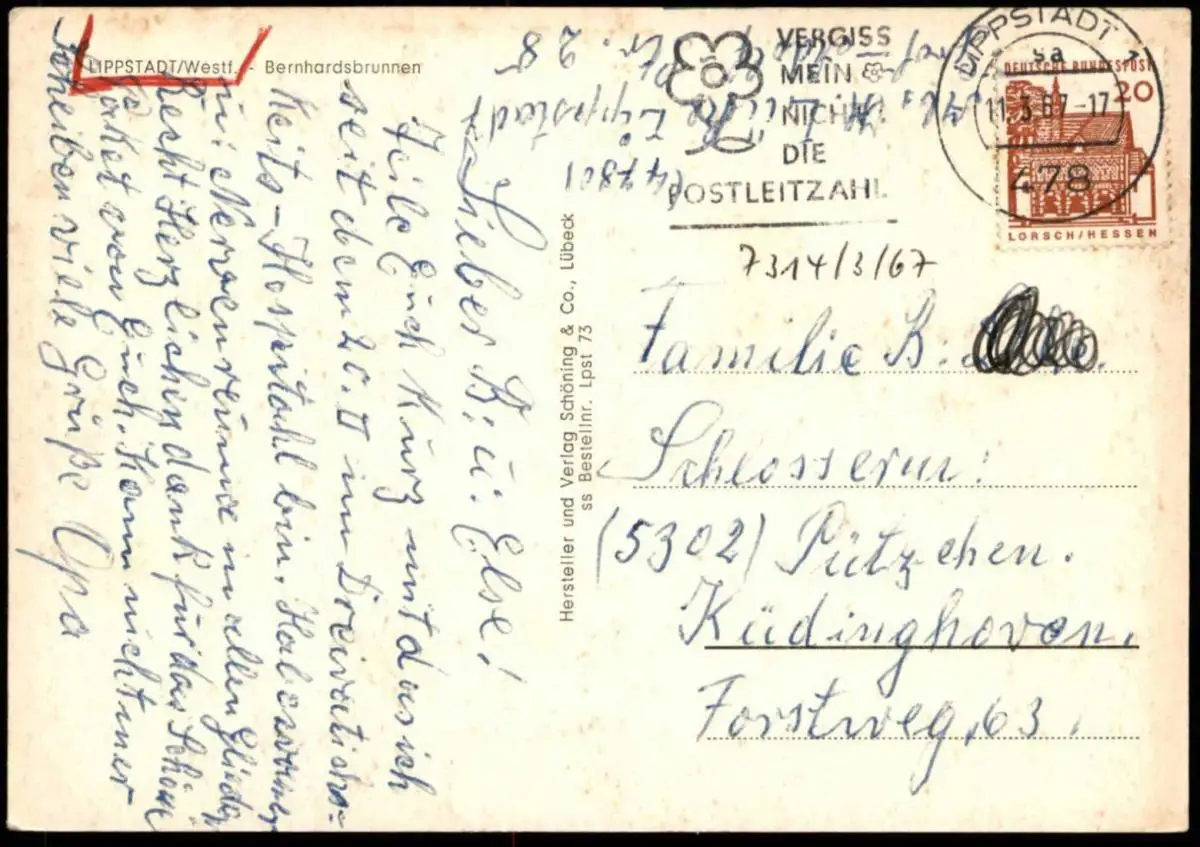 LIPPSTADT/Westf. - Bernhardsbrunnen
VERGISS
MEIN
NICHT
DIE
POSTLEITZAHL
LIPPSTADT 1
sa
11.3.67-17
478
DEUTSCHE BUNDESPOST
20
LORSCH/HESSEN
Lippstadt
(47801
7314/3/67
Lieber B; u: Else!
Teile Euch kurz mit das ich
seit dem 20. II im Dreivatichs-
Keits-Hospitahl bin. Habe
Nerven in allen Glieder
Recht Herzlichen dank für das Schöne
Paket von Euch. Kann nicht mer
Schreiben viele Grüße Opa
Hersteller und Verlag Schöning & Co., Lübeck
ss Bestellnr. Lpst 73
Familie B:
Schlosserm:
(5302) Pützchen.
Küdinghoven.
Forstweg, 63.